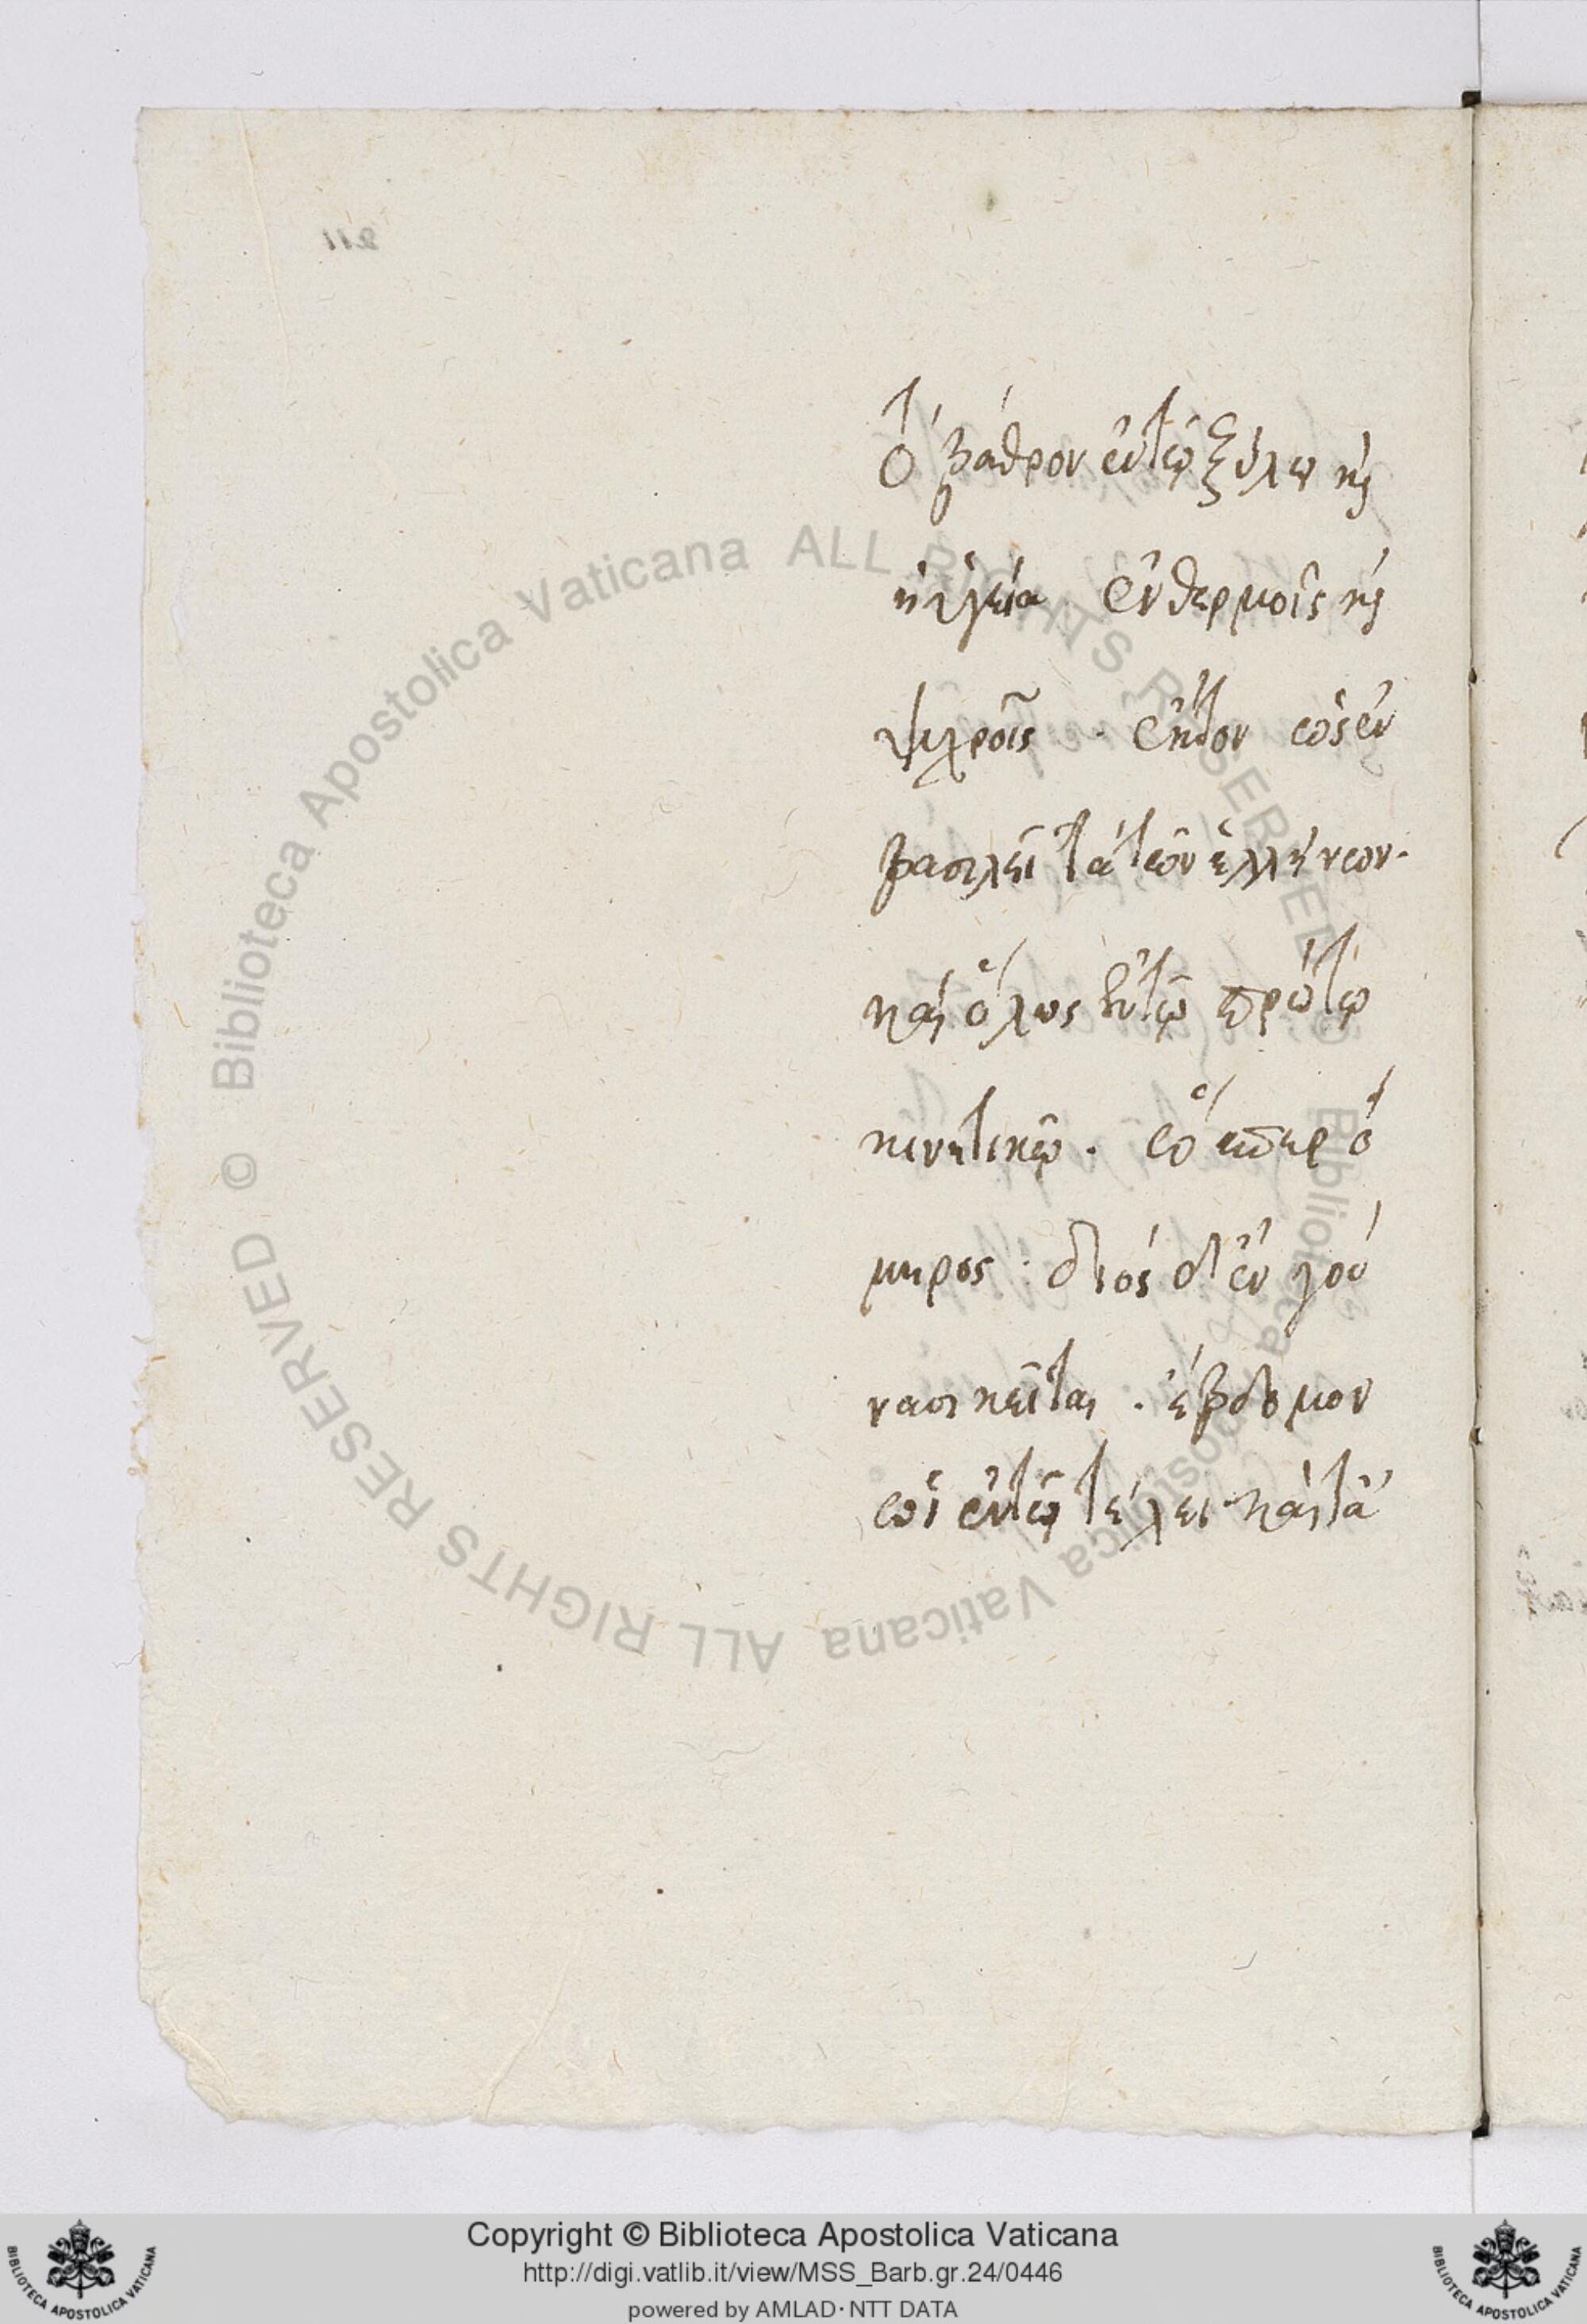 211
τὸ βάθρον ἐν τῷ ξύλῳ κ̀
ἡ ὑγεία ἐν θερμοῖς κ̀
ψυχροῖς · ἕκτον ὡς ἐν
βασιλεῖ τὰ τῶν ἑλλήνων·
καὶ ὅλως ἐν τῷ πρώτῳ
κινητικῷ · ὥσπερ ὁ
μηρος · διὸς δ' ἐν γού
νασι κεῖται · ἕβδομον
ὡς ἐν τῷ τέλει· καὶ τὰ
Biblioteca Apostolica Vaticana ALL RIGHTS RESERVED ©
Biblioteca Apostolica Vaticana ALL RIGHTS RESERVED ©
Copyright © Biblioteca Apostolica Vaticana
http://digi.vatlib.it/view/MSS_Barb.gr.24/0446
powered by AMLAD · NTT DATA
BIBLIOTECA APOSTOLICA VATICANA
BIBLIOTECA APOSTOLICA VATICANA